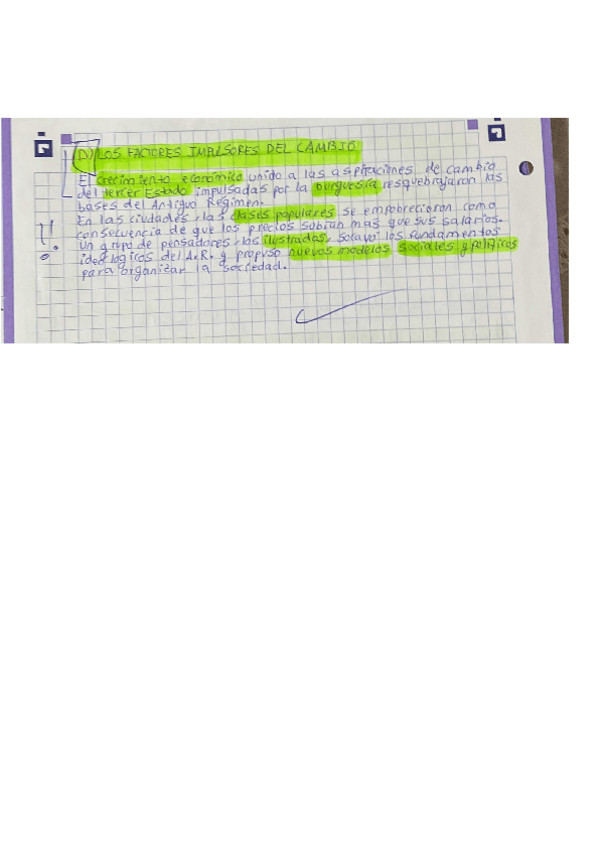 D) LOS FACTORES IMPULSORES DEL CAMBIO
El crecimiento económico unido a las aspiraciones de cambio
del tercer Estado impulsadas por la burguesía resquebrajaron las
bases del Antiguo Régimen.
En las ciudades, las clases populares se empobrecieron como
consecuencia de que los precios subían mas que sus salarios.
Un grupo de pensadores, los ilustrados, socavó los fundamentos
ideologicos del A.R. y propuso nuevos modelos sociales y políticos
para organizar la sociedad.